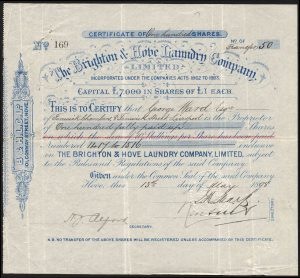 CERTIFICATE OF One hundred SHARES.
No 169
No. OF
Transfer 50
The Brighton & Hove Laundry Company,
LIMITED
INCORPORATED UNDER THE COMPANIES ACTS 1862 TO 1883.
CAPITAL £7,000 IN SHARES OF £1 EACH.
THIS IS TO CERTIFY that George Ward Esqr
is the Proprietor
of One hundred fully paid up Shares
Numbered 1417 to 1516 inclusive
in THE BRIGHTON & HOVE LAUNDRY COMPANY, LIMITED, subject
to the Rules and Regulations of the said Company.
Given under the Common Seal of the said Company
Hove, this day of May
SECRETARY.
N.B. NO TRANSFER OF THE ABOVE SHARES WILL BE REGISTERED UNLESS ACCOMPANIED BY THIS CERTIFICATE.